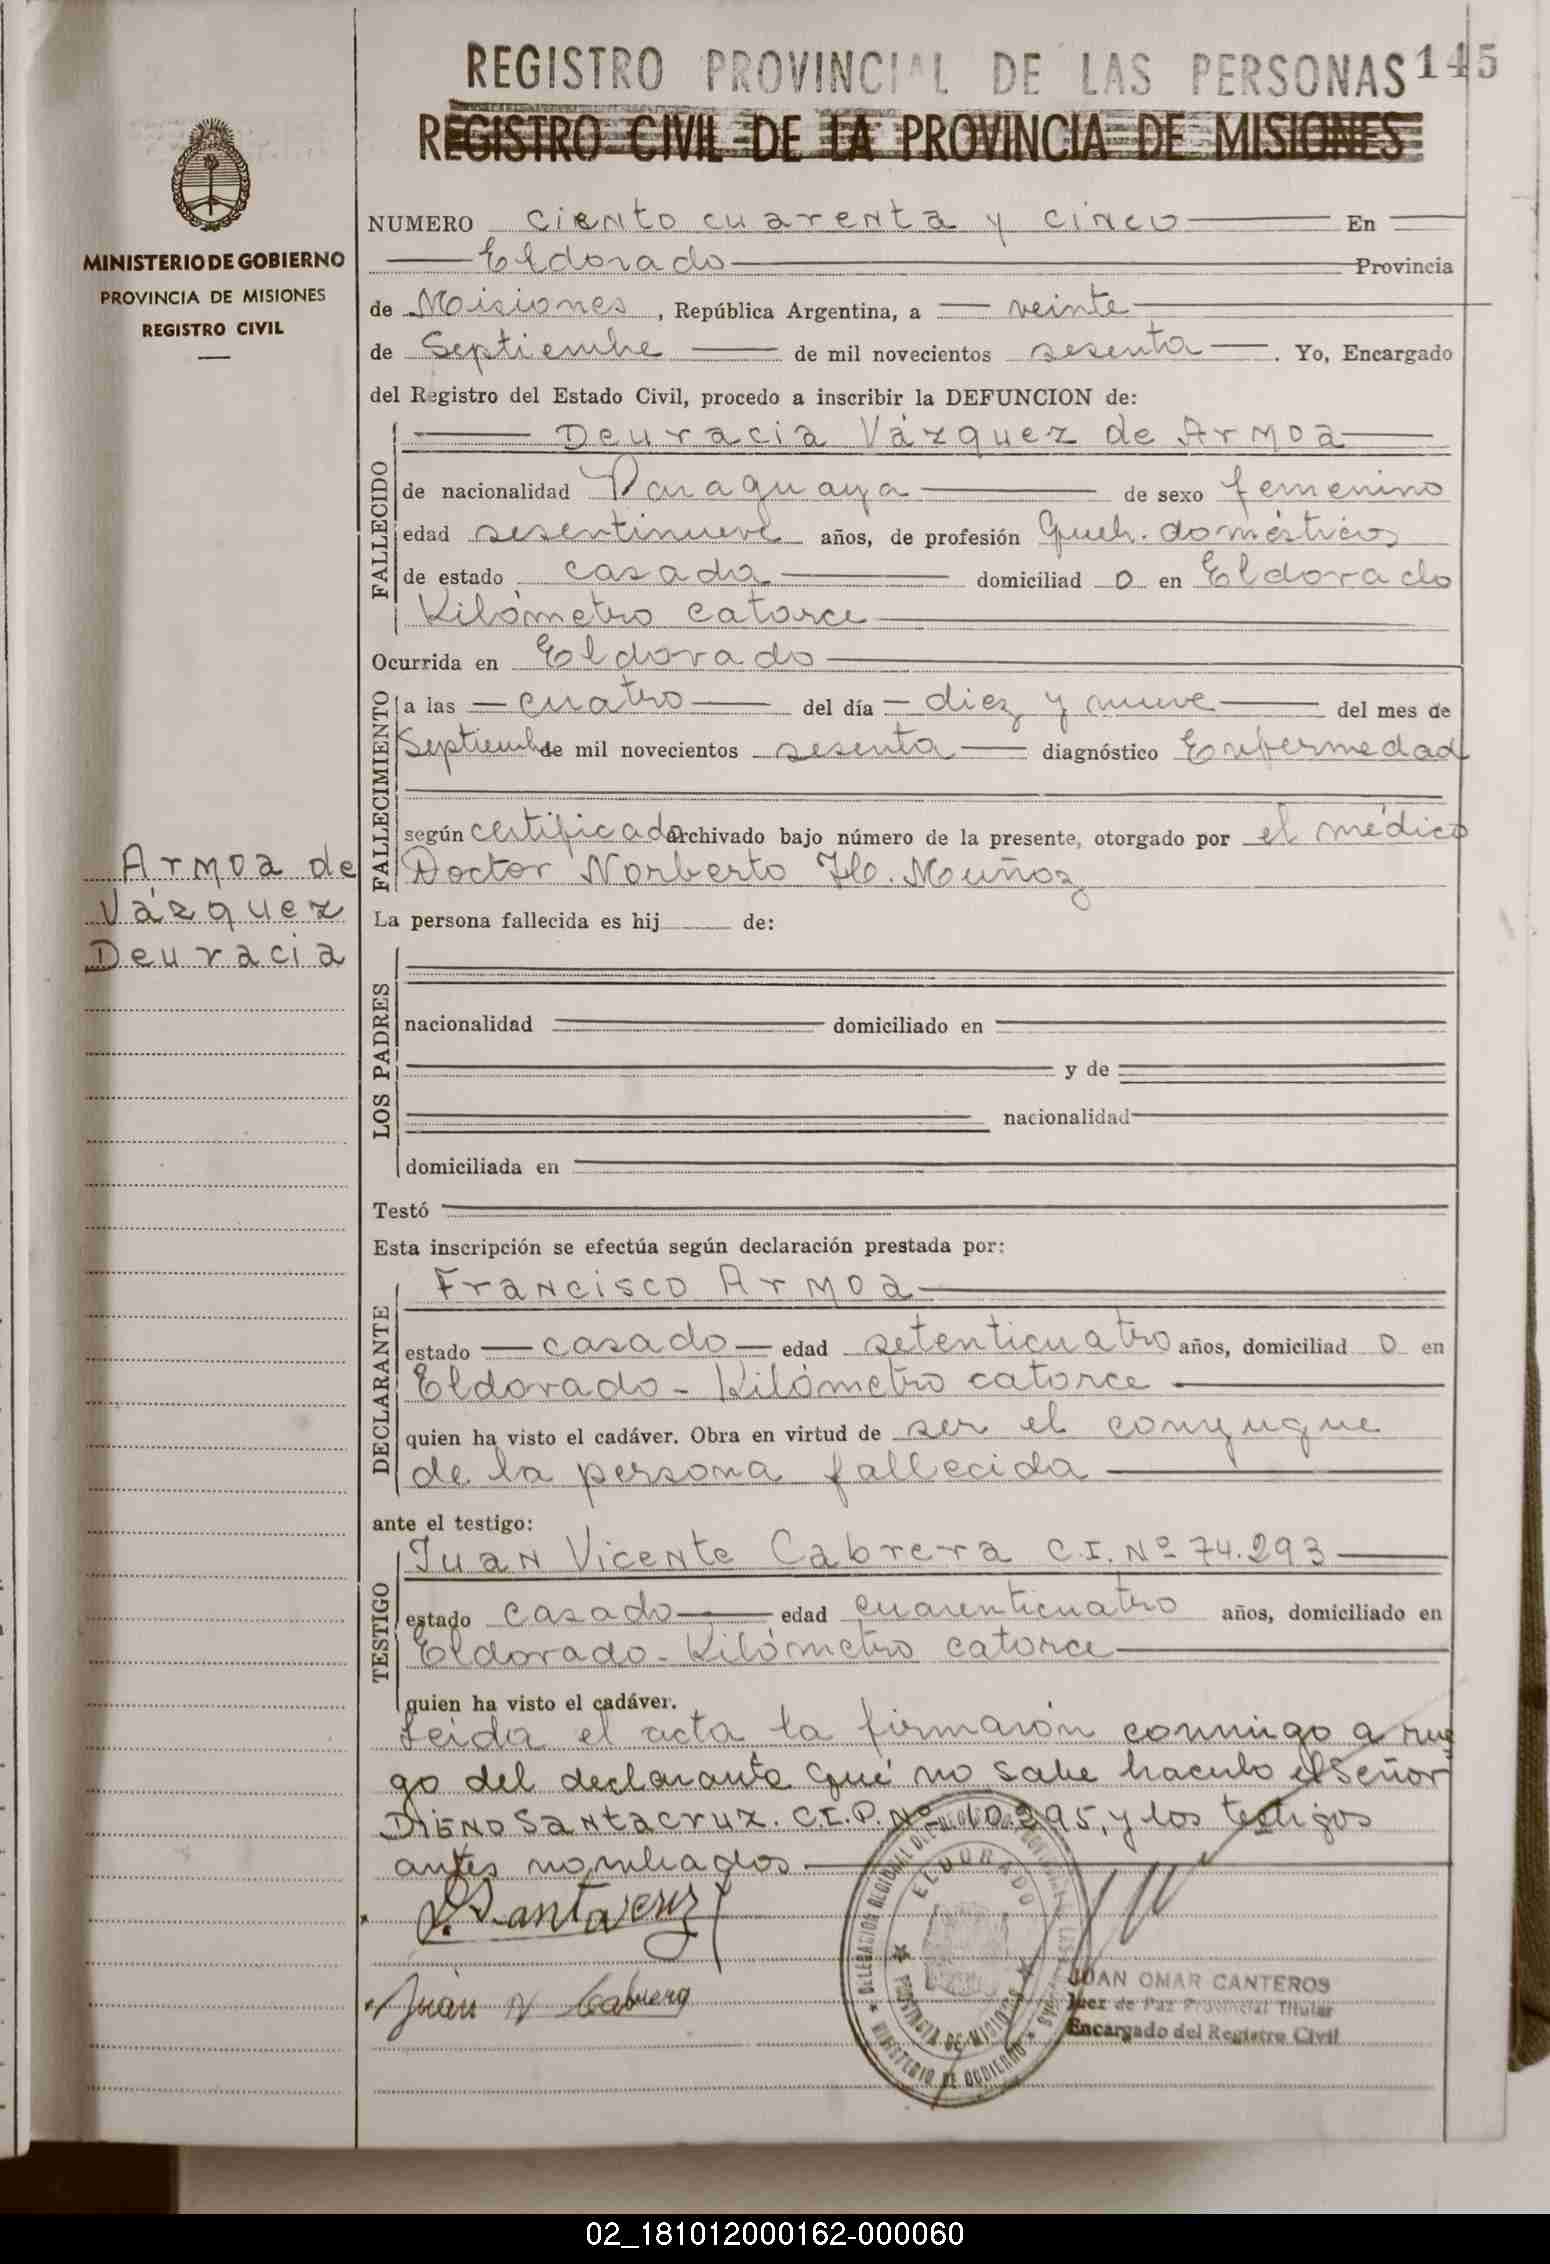 REGISTRO PROVINCIAL DE LAS PERSONAS 145
REGISTRO CIVIL DE LA PROVINCIA DE MISIONES
MINISTERIO DE GOBIERNO
PROVINCIA DE MISIONES
REGISTRO CIVIL
NUMERO ciento cuarenta y cinco En
Eldorado Provincia
de Misiones, República Argentina, a veinte
de Septiembre de mil novecientos sesenta. Yo, Encargado
del Registro del Estado Civil, procedo a inscribir la DEFUNCION de:
FALLECIDO
Deuracia Vázquez de Armoa
de nacionalidad Paraguaya de sexo femenino
edad sesentinueve años, de profesión Queh. domésticos
de estado casada domiciliad o en Eldorado
Kilómetro catorce
Ocurrida en Eldorado
FALLECIMIENTO
a las cuatro del día diez y nueve del mes de
Septiembre de mil novecientos sesenta diagnóstico Enfermedad
según certificado archivado bajo número de la presente, otorgado por el médico
Doctor Norberto H. Muñoz
Armoa de
Vázquez
Deuracia
La persona fallecida es hij de:
LOS PADRES
nacionalidad domiciliado en
y de
nacionalidad
domiciliada en
Testó
Esta inscripción se efectúa según declaración prestada por:
DECLARANTE
Francisco Armoa
estado casado edad setenticuatro años, domiciliad o en
Eldorado - Kilómetro catorce
quien ha visto el cadáver. Obra en virtud de ser el conyugue
de la persona fallecida
ante el testigo:
TESTIGO
Juan Vicente Cabrera C.I. Nº 74.293
estado casado edad cuarenticuatro años, domiciliado en
Eldorado - Kilómetro catorce
quien ha visto el cadáver.
Leida el acta la firmarón conmigo a rue
go del declarante que no sabe hacerlo el Señor
Dieno Santacruz. C.I.P. Nº 10.295, y los testigos
antes nombrados
D. Santacruz
Juan V Cabrera
DELEGACION REGIONAL
ELDORADO
PROVINCIA DE MISIONES
MINISTERIO DE GOBIERNO
JUAN OMAR CANTEROS
Juez de Paz Provincial Titular
Encargado del Registro Civil
02_181012000162-000060